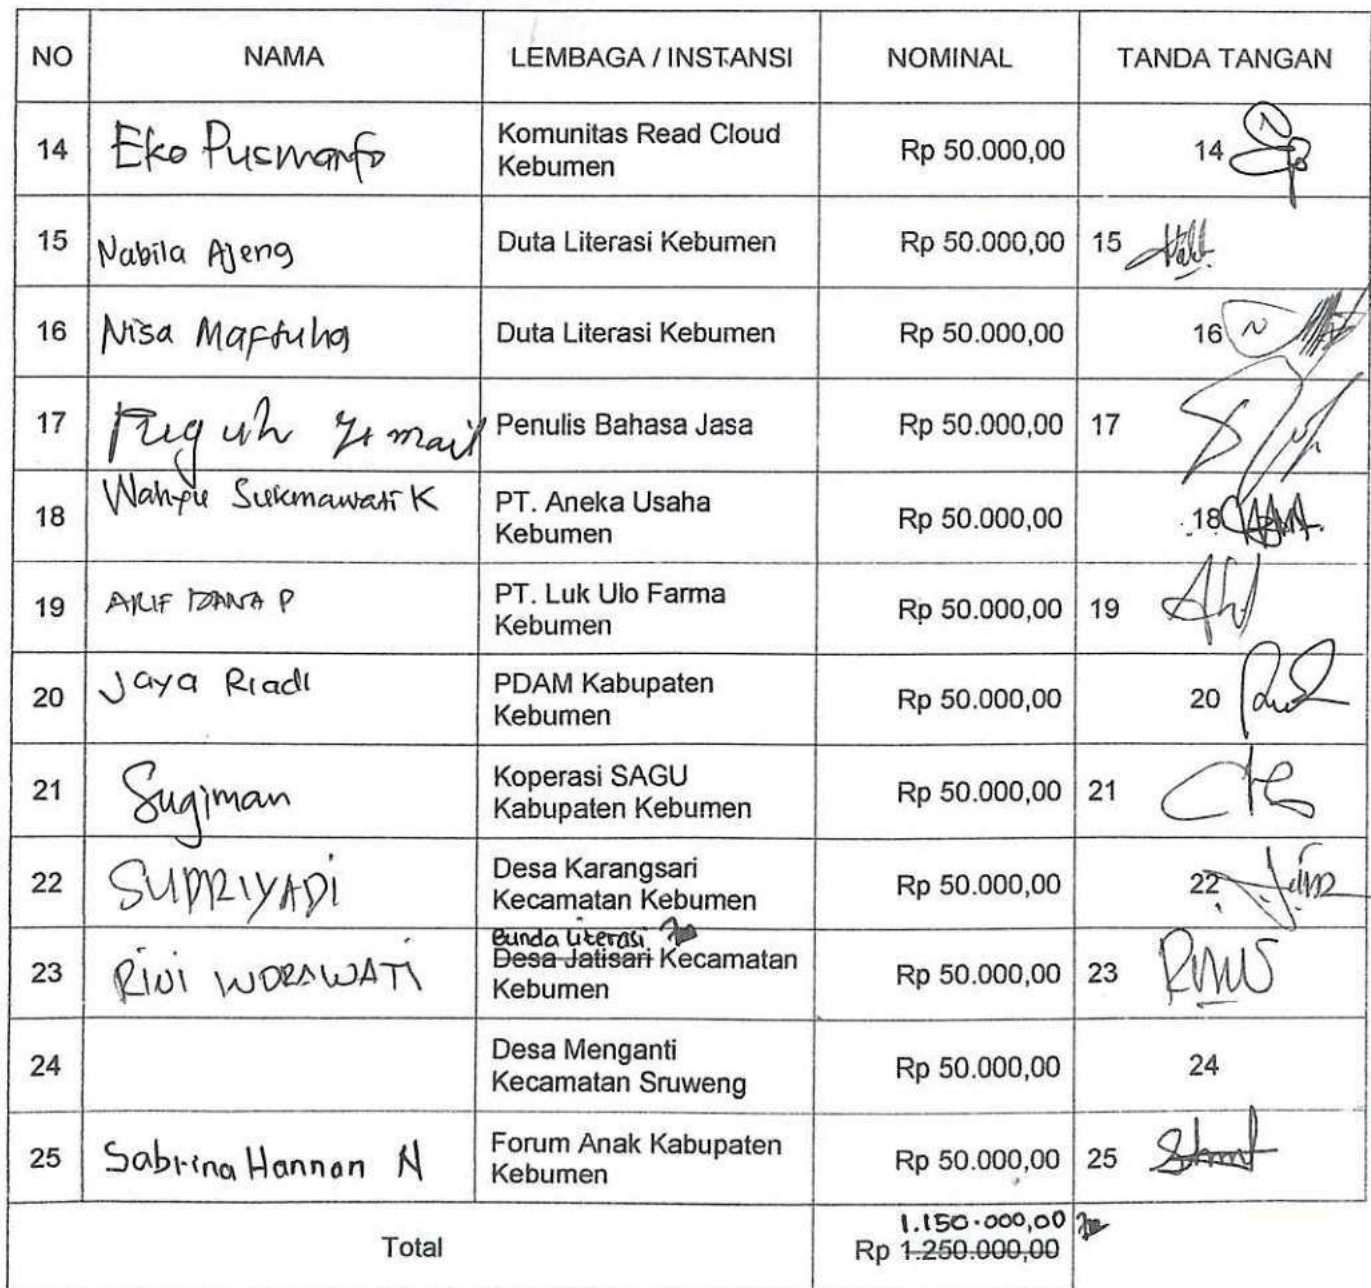 NO NAMA LEMBAGA / INSTANSI NOMINAL TANDA TANGAN
14 Eko Pusmanto Komunitas Read Cloud Kebumen Rp 50.000,00 14
15 Nabila Ajeng Duta Literasi Kebumen Rp 50.000,00 15
16 Nisa Maftuha Duta Literasi Kebumen Rp 50.000,00 16
17 Penulis Bahasa Jasa Rp 50.000,00 17
18 Wahyu Sukmawati K PT. Aneka Usaha Kebumen Rp 50.000,00 18
19 ARIF P PT. Luk Ulo Farma Kebumen Rp 50.000,00 19
20 Jaya Riadi PDAM Kabupaten Kebumen Rp 50.000,00 20
21 Sugiman Koperasi SAGU Kabupaten Kebumen Rp 50.000,00 21
22 SUPRIYADI Desa Karangsari Kecamatan Kebumen Rp 50.000,00 22
Bunda Literasi
23 RINI Desa Jatisari Kecamatan Kebumen Rp 50.000,00 23
24 Desa Menganti Kecamatan Sruweng Rp 50.000,00 24
25 Sabrina Hannan N Forum Anak Kabupaten Kebumen Rp 50.000,00 25
1.150.000,00
Total Rp 1.250.000,00